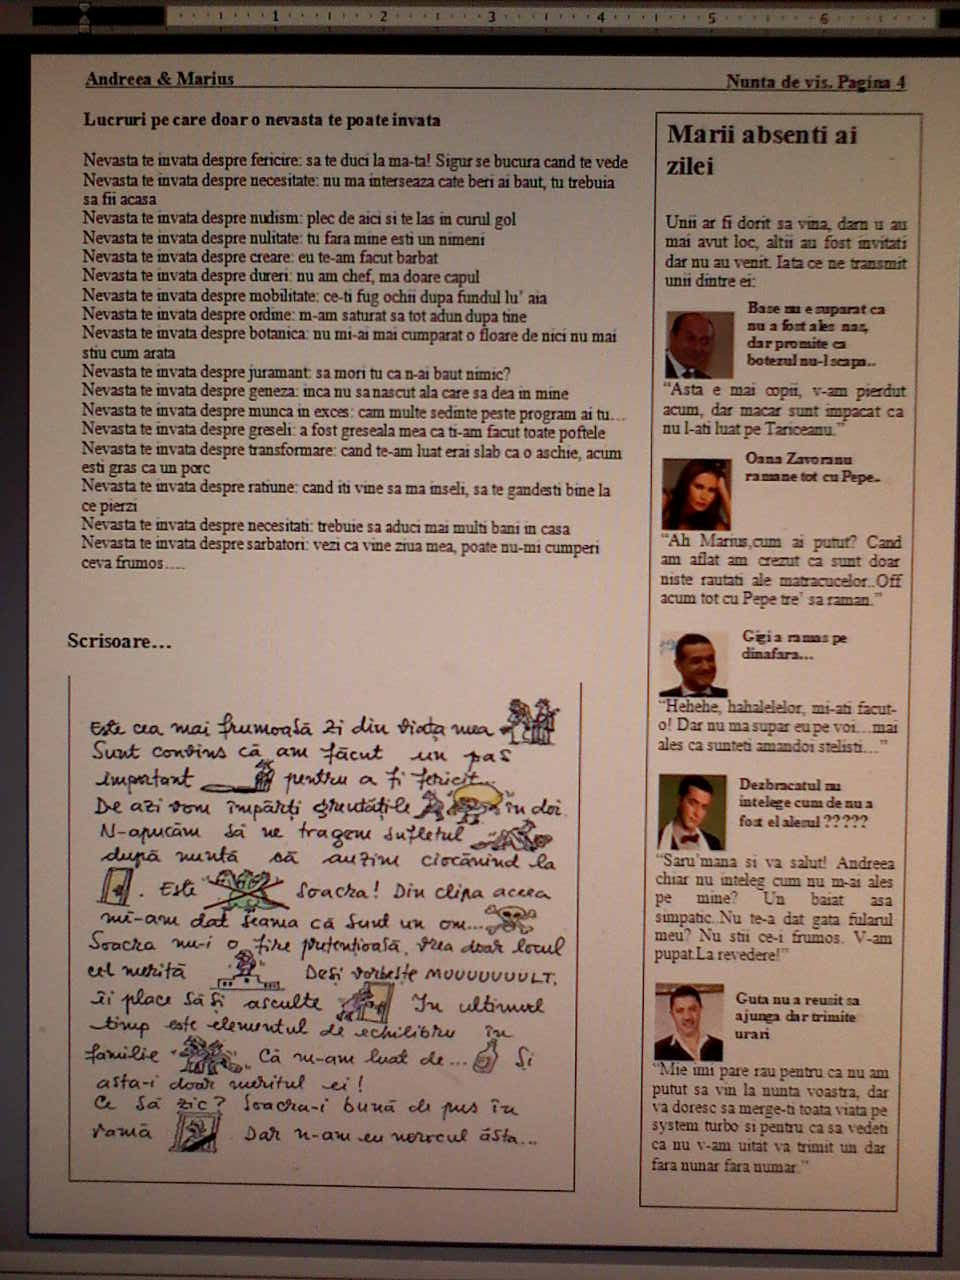 1 2 3 4 5 6
Andreea & Marius
Nunta de vis. Pagina 4
Lucruri pe care doar o nevasta te poate invata
Nevasta te invata despre fericire: sa te duci la ma-ta! Sigur se bucura cand te vede
Nevasta te invata despre necesitate: nu ma interseaza cate beri ai baut, tu trebuia
sa fii acasa
Nevasta te invata despre nudism: plec de aici si te las in curul gol
Nevasta te invata despre nulitate: tu fara mine esti un nimeni
Nevasta te invata despre creare: eu te-am facut barbat
Nevasta te invata despre dureri: nu am chef, ma doare capul
Nevasta te invata despre mobilitate: ce-ti fug ochii dupa fundul lu' aia
Nevasta te invata despre ordine: m-am saturat sa tot adun dupa tine
Nevasta te invata despre botanica: nu mi-ai mai cumparat o floare de nici nu mai
stiu cum arata
Nevasta te invata despre juramant: sa mori tu ca n-ai baut nimic?
Nevasta te invata despre geneza: inca nu sa nascut ala care sa dea in mine
Nevasta te invata despre munca in exces: cam multe sedinte peste program ai tu…
Nevasta te invata despre greseli: a fost greseala mea ca ti-am facut toate poftele
Nevasta te invata despre transformare: cand te-am luat erai slab ca o aschie, acum
esti gras ca un porc
Nevasta te invata despre ratiune: cand iti vine sa ma inseli, sa te gandesti bine la
ce pierzi
Nevasta te invata despre necesitati: trebuie sa aduci mai multi bani in casa
Nevasta te invata despre sarbatori: vezi ca vine ziua mea, poate nu-mi cumperi
ceva frumos.....
Scrisoare…
Este cea mai frumoasă zi din viața mea
Sunt convins că am făcut un pas
important pentru a fi fericit...
De azi vom împărți greutățile în doi.
N-apucăm să ne tragem sufletul
după nuntă că auzim ciocănind la
. Este Soacra! Din clipa aceea
mi-am dat seama că sunt un om...
Soacra nu-i o fire pretențioasă, vrea doar locul
cel merită Deși vorbește MUUUUUUULT,
îi place să și asculte În ultimul
timp este elementul de echilibru în
familie Că m-am luat de... Și
asta-i doar meritul ei!
Ce să zic? Soacra-i bună de pus în
ramă . Dar n-am eu norocul ăsta...
Marii absenti ai
zilei
Unii ar fi dorit sa vina, darn u au
mai avut loc, altii au fost invitati
dar nu au venit. Iata ce ne transmit
unii dintre ei:
Base nu e suparat ca
nu a fost ales nas,
dar promite ca
botezul nu-l scapa..
“Asta e mai copii, v-am pierdut
acum, dar macar sunt impacat ca
nu l-ati luat pe Tariceanu.”
Oana Zavoranu
ramane tot cu Pepe..
“Ah Marius,cum ai putut? Cand
am aflat am crezut ca sunt doar
niste rautati ale matracucelor..Off
acum tot cu Pepe tre' sa raman.”
Gigi a ramas pe
dinafara…
“Hehehe, hahalelelor, mi-ati facut-
o! Dar nu ma supar eu pe voi…mai
ales ca sunteti amandoi stelisti…”
Dezbracatul nu
intelege cum de nu a
fost el alesul ?????
“Saru'mana si va salut! Andreea
chiar nu inteleg cum nu m-ai ales
pe mine? Un baiat asa
simpatic..Nu te-a dat gata fularul
meu? Nu stii ce-i frumos. V-am
pupat.La revedere!”
Guta nu a reusit sa
ajunga dar trimite
urari
“Mie imi pare rau pentru ca nu am
putut sa vin la nunta voastra, dar
va doresc sa merge-ti toata viata pe
system turbo si pentru ca sa vedeti
ca nu v-am uitat va trimit un dar
fara nunar fara numar.”